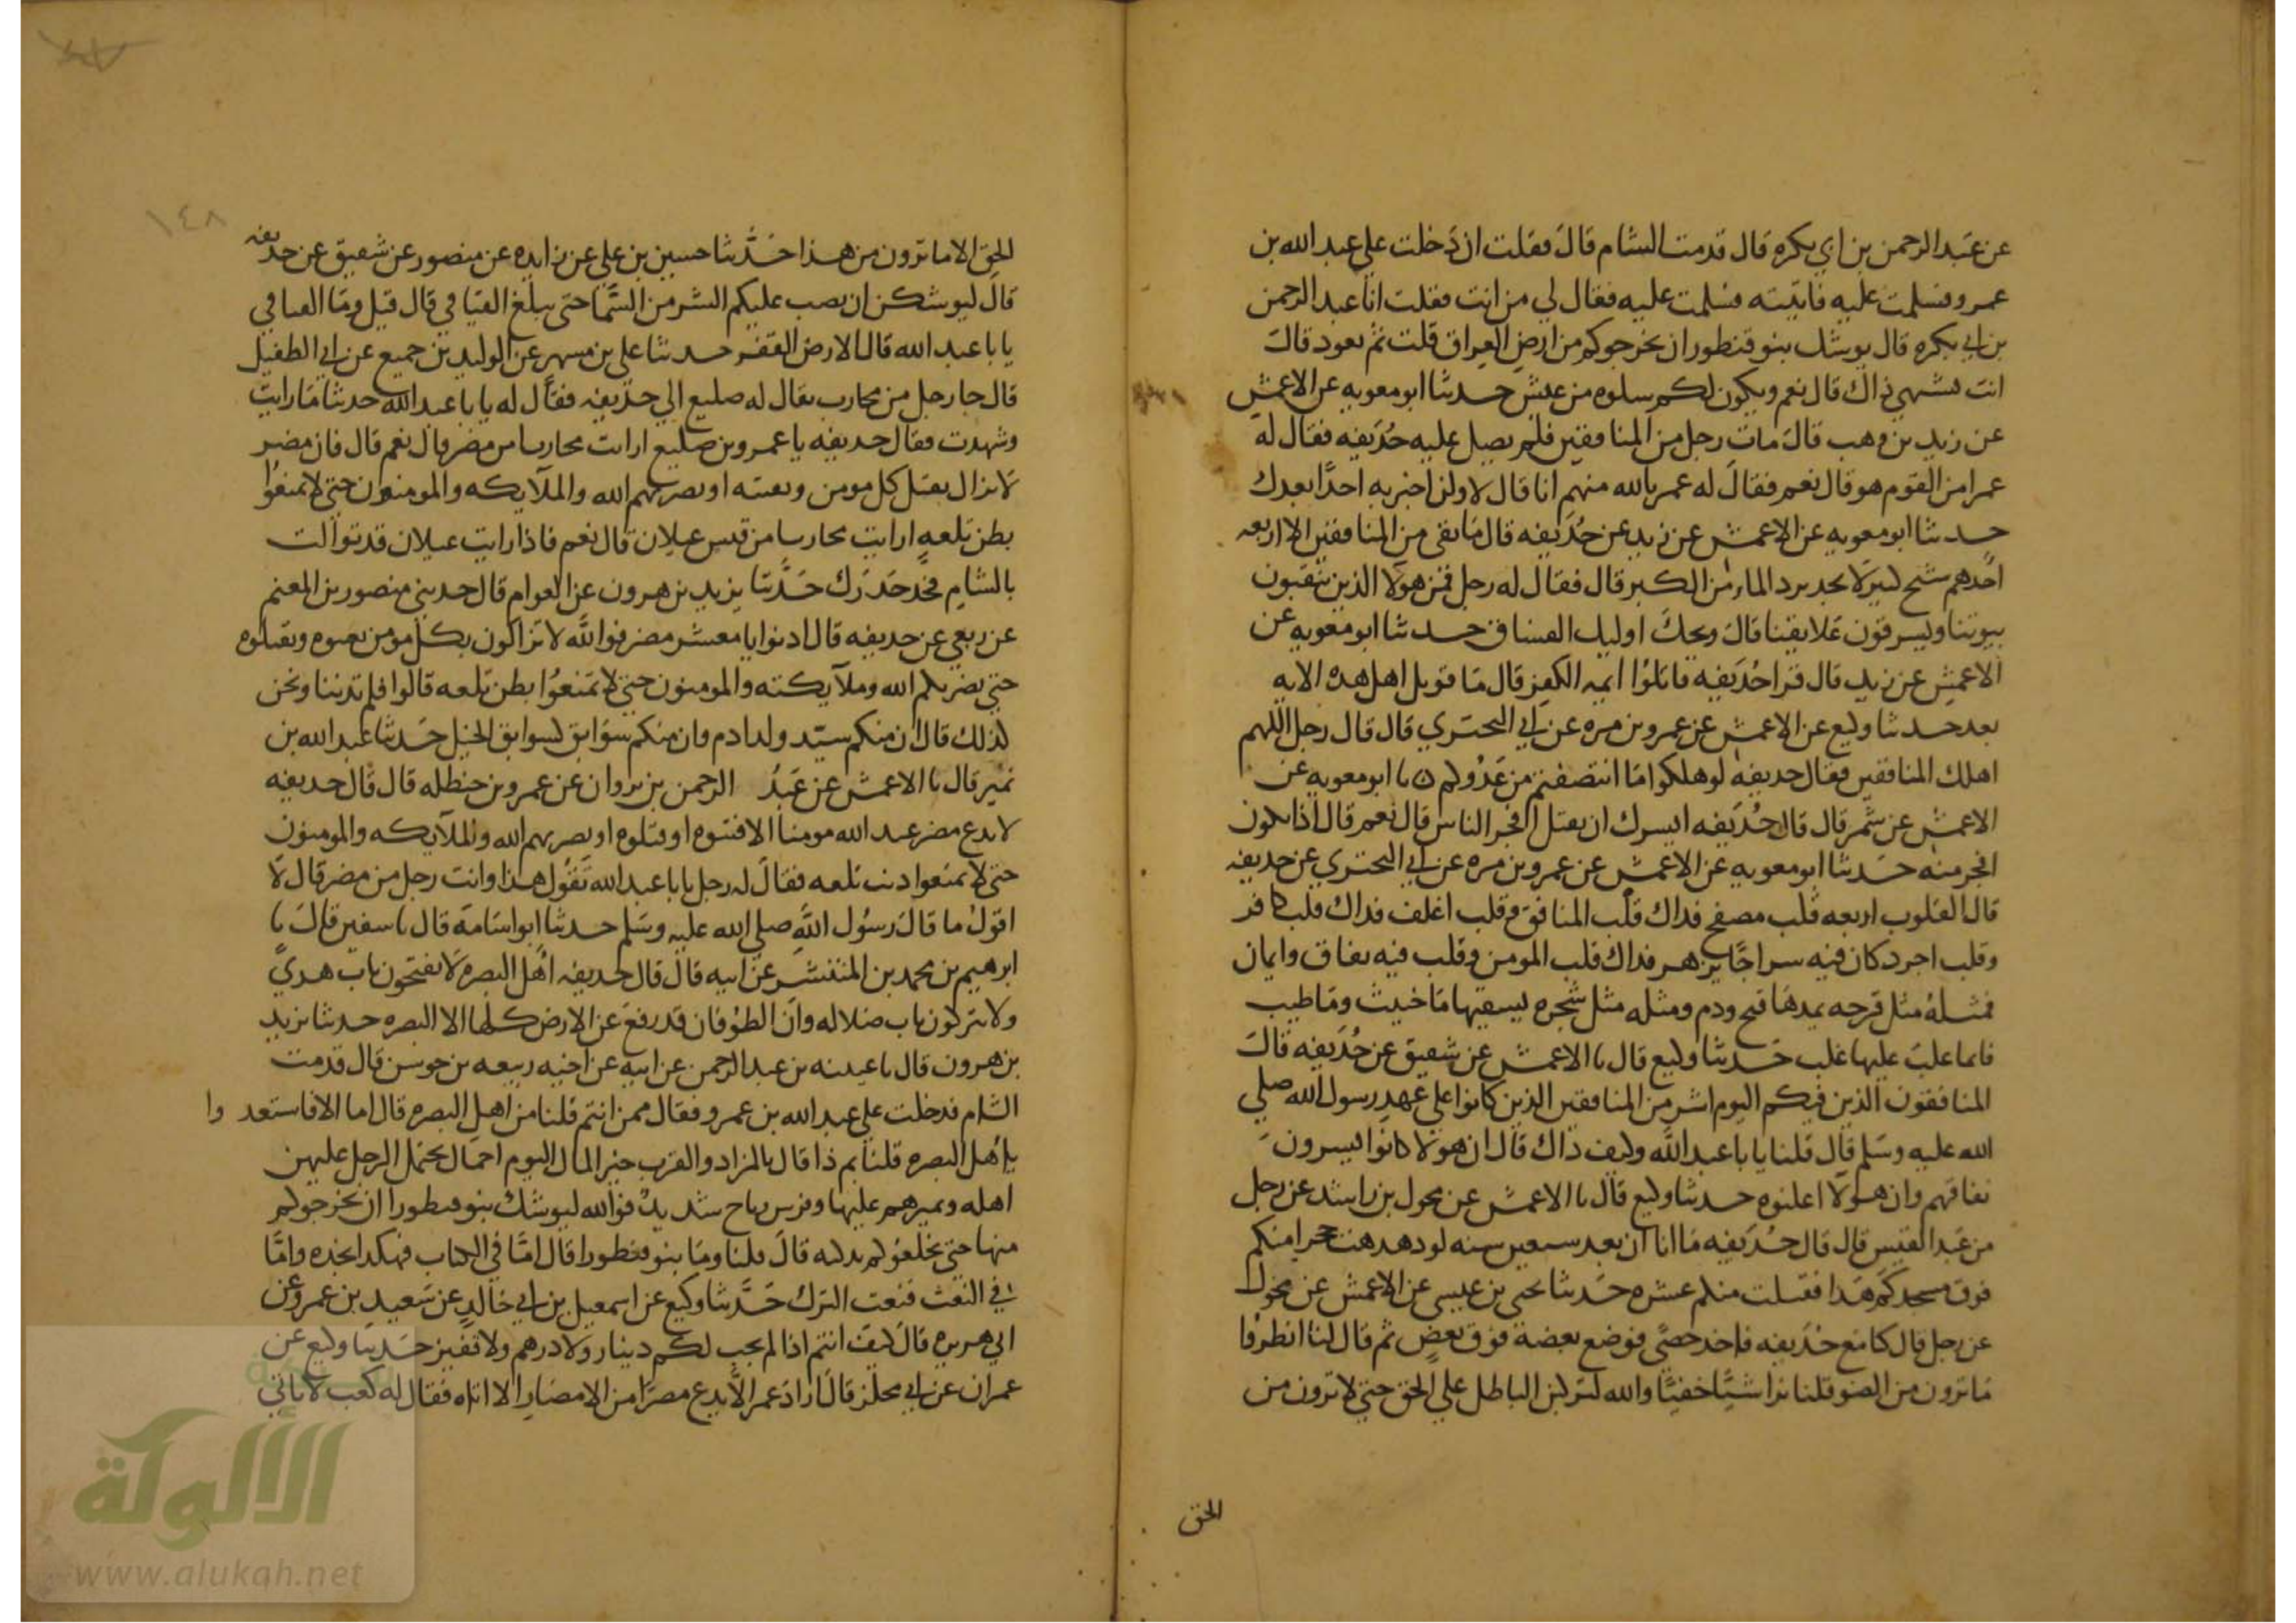 عن عبد الرحمن بن ابي بكره قال قدمت الشام قال فقلت ان دخلت على عبد الله بن
عمرو فسلمت عليه فاتيته فسلمت عليه فقال لي من انت فقلت انا عبد الرحمن
بن ابي بكره قال يوشك بنو قنطورا ان يخرجوكم من ارض العراق قلت ثم نعود قال
انت تشتهي ذاك قال نعم ويكون لكم سلوه من عيش حدثنا ابو معويه عن الاعمش
عن زيد بن وهب قال مات رجل من المنافقين فلم يصل عليه حذيفه فقال له
عمر امن القوم هو قال نعم فقال له عمر بالله منهم انا قال لا ولن اخبر به احدا بعدك
حدثنا ابو معويه عن الاعمش عن زيد عن حذيفه قال ما بقي من المنافقين الا اربعه
احدهم شيخ كبير لا يجد برد الماء من الكبر قال فقال له رجل فمن هولا الذين ينقبون
بيوتنا ويسرقون علايقنا قال ويحك اوليك الفساق حدثنا ابو معويه عن
الاعمش عن زيد قال قرا حذيفه فاتلوا ايمه الكفر قال ما قوتل اهل هذه الايه
بعد حدثنا وكيع عن الاعمش عن عمرو بن مره عن ابي البختري قال قال رجل اللهم
اهلك المنافقين فقال حذيفه لو هلكوا ما انتصفتم من عدوكم ٥ نا ابو معويه عن
الاعمش عن شمر قال قال حذيفه ايسرك ان تقتل افجر الناس قال نعم قال اذا تكون
افجر منه حدثنا ابو معويه عن الاعمش عن عمرو بن مره عن ابي البختري عن حذيفه
قال القلوب اربعه قلب مصفح فذاك قلب المنافق وقلب اغلف فذاك قلب كافر
وقلب اجرد كان فيه سراجا يزهر فذاك قلب المومن وقلب فيه نفاق وايمان
فمثله مثل قرحه يمدها قيح ودم ومثله مثل شجره يسقيها ما خبيث وما طيب
فايما غلب عليها غلب حدثنا وكيع قال نا الاعمش عن شقيق عن حذيفه قال
المنافقون الذين فيكم اليوم اشر من المنافقين الذين كانوا على عهد رسول الله صلى
الله عليه وسلم قال قلنا يا با عبد الله وكيف ذاك قال ان هولا كانوا يسرون
نفاقهم وان هولا اعلنوه حدثنا وكيع قال نا الاعمش عن مخول بن راشد عن رجل
من عبد القيس قال قال حذيفه ما انا آن بعد سبعين سنه لو دهدهت حجرا منكم
فوق مسجدكم هذا فقتلت منكم عشره حدثنا يحيى بن عيسى عن الاعمش عن مخول
عن رجل قال كنا مع حذيفه فاخذ حصى فوضع بعضه فوق بعض ثم قال لنا انظروا
ما ترون من الضو قلنا نرا شيا خفيا والله ليركبن الباطل على الحق حتى لا ترون من
الحق
١٤٨
الحق الا ما ترون من هذا حدثنا حسين بن علي عن زايده عن منصور عن شقيق عن حذيفه
قال ليوشكن ان يصب عليكم الشر من السما حتى يبلغ الفيافي قال قيل وما الفيافي
يا با عبد الله قال الارض القفر حدثنا علي بن مسهر عن الوليد بن جميع عن ابي الطفيل
قال جا رجل من محارب يقال له صليع الى حذيفه فقال له يا با عبد الله حدثنا ما رايت
وشهدت فقال حذيفه يا عمرو بن صليع ارايت محاربا من مضر قال نعم قال فان مضر
لا تزال تقتل كل مومن وتفتنه او يضربهم الله والملايكه والمومنون حتى لا يمنعوا
بطن تلعه ارايت محاربا من قيس عيلان قال نعم فاذا رايت عيلان قد توالت
بالشام فخذ حذرك حدثنا يزيد بن هرون عن العوام قال حدثني منصور بن المعتمر
عن ربعي عن حذيفه قال ادنوا يا معشر مضر فوالله لا تزالون بكل مومن تفتنوه وتقتلوه
حتى يضربكم الله وملايكته والمومنون حتى لا تمنعوا بطن تلعه قالوا فلم تدنينا ونحن
كذلك قال ان منكم سيد ولد ادم وان منكم سوابق كسوابق الخيل حدثنا عبد الله بن
نمير قال نا الاعمش عن عبد الرحمن بن ثروان عن عمرو بن حنظله قال قال حذيفه
لا تدع مضر عبد الله مومنا الا فتنوه او قتلوه او يضربهم الله والملايكه والمومنون
حتى لا يمنعوا ذنب تلعه فقال له رجل يا با عبد الله تقول هذا وانت رجل من مضر قال لا
اقول ما قال رسول الله صلى الله عليه وسلم حدثنا ابو اسامه قال نا سفين قال نا
ابرهيم بن محمد بن المنتشر عن ابيه قال قال حذيفه اهل البصره لا يفتحون باب هدي
ولا يتركون باب ضلاله وان الطوفان قد رفع عن الارض كلها الا البصره حدثنا يزيد
بن هرون قال نا عيينه بن عبد الرحمن عن ابيه عن اخيه ربيعه بن جوشن قال قدمت
الشام فدخلت على عبد الله بن عمرو فقال ممن انتم قلنا من اهل البصره قال اما الا فاستعدوا
يا اهل البصره قلنا بم ذا قال بالمزاد والقرب خير المال اليوم احمال يحتمل الرجل عليهن
اهله ويميرهم عليها وفرس وقاح شديد فوالله ليوشك بنو قنطورا ان يخرجوكم
منها حتى يخلفوكم بدكبه قال قلنا وما بنو قنطورا قال اما في الكتاب فهكذا نجده واما
في النعت فنعت الترك حدثنا وكيع عن اسمعيل بن ابي خالد عن سعيد بن عمرو عن
ابي هريره قال كيف انتم اذا لم يجب لكم دينار ولا درهم ولا قفيز حدثنا وكيع عن
عمران عن ابي مجلز قال اراد عمر الا يدع مصرا من الامصار الا اتاه فقال له كعب لا تاتي
الألوكة
www.alukah.net